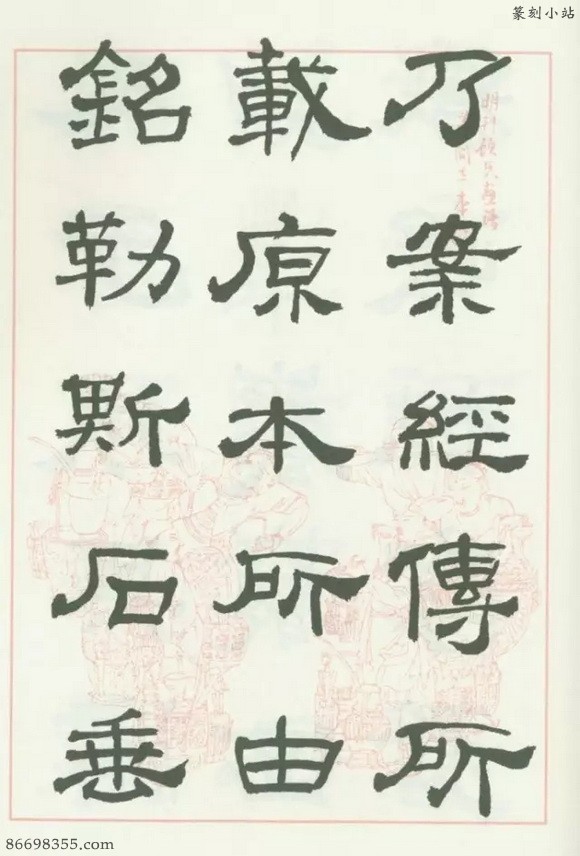 篆刻小站
乃案經傳所
載原本所由
銘勒斯石垂
86698355.com